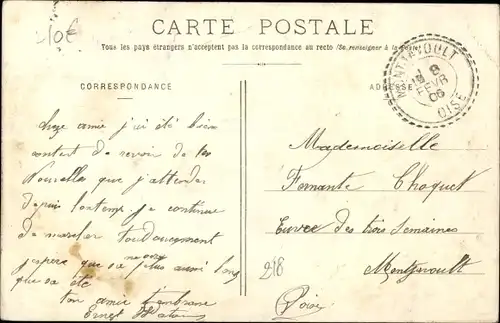 10€
CARTE POSTALE
Tous les pays étrangers n'acceptent pas la correspondance au recto (Se renseigner à la poste)
CORRESPONDANCE
ADRESSE
8
FEVR
06
OISE
chere amie j'ai été bien
contant de revoir de tes
Nouvelle que j'attendes
depuis lontemps je continue
de marcher toudoucement
j'espere que sa plus aussi long
que sa été
ton amie t'embrasse
Ernest
Mademoiselle
Fernante Choquet
des trois Semaines
Montjavoult
Oise
218